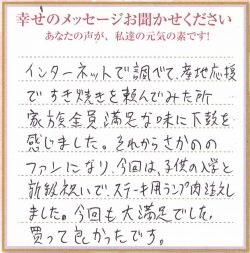 幸せのメッセージお聞かせください
あなたの声が、私達の元気の素です!
インターネットで調べて、産地応援
で すき焼きを頼んでみた所
家族全員満足な味に下鼓を
感じました。それからさかのの
ファンになり、今回は、子供の入学と
新級祝いで、ステーキ用ランプ肉注文し
ました。今回も大満足でした。
買って良かったです。